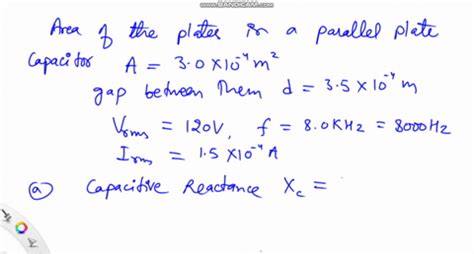 www.BANDICAM.com
Area of the plates in a parallel plate
Capacitor A = 3.0 X10⁻⁴ m²
gap between them d = 3.5 X10⁻⁴ m
Vrms = 120V, f = 8.0KHz = 8000Hz
Irms = 1.5 X10⁻⁴ A
ⓐ Capacitive Reactance Xc =